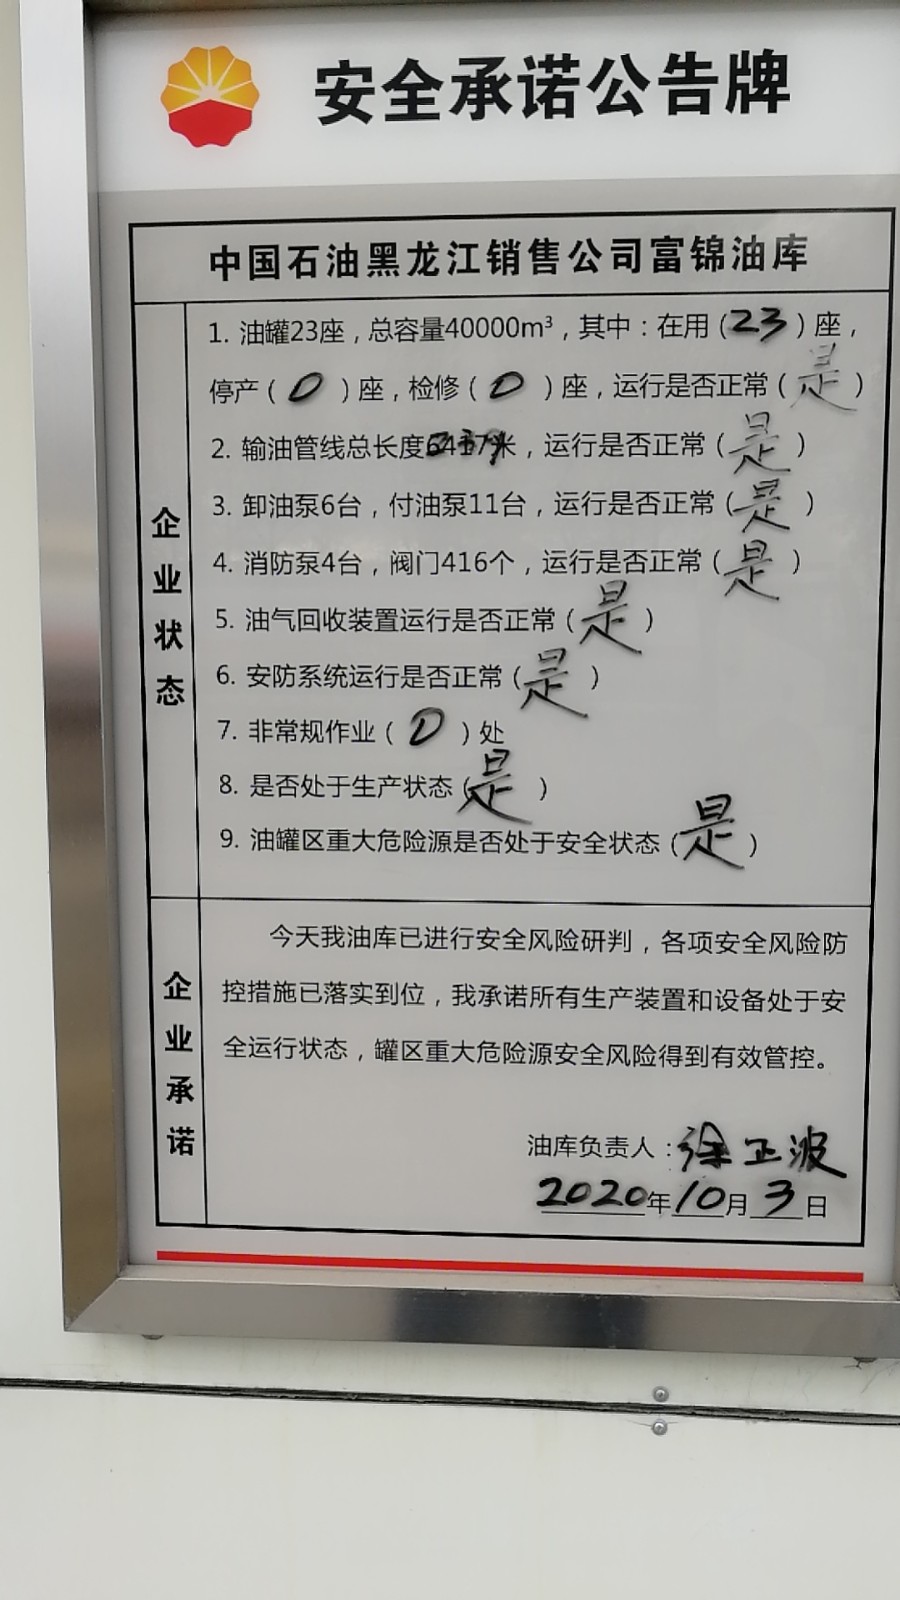 安全承诺公告牌
中国石油黑龙江销售公司富锦油库
企业状态
1. 油罐23座，总容量40000m³，其中：在用（23）座，
停产（0）座，检修（0）座，运行是否正常（是）
2. 输油管线总长度米，运行是否正常（是）
3. 卸油泵6台，付油泵11台，运行是否正常（是）
4. 消防泵4台，阀门416个，运行是否正常（是）
5. 油气回收装置运行是否正常（是）
6. 安防系统运行是否正常（是）
7. 非常规作业（0）处
8. 是否处于生产状态（是）
9. 油罐区重大危险源是否处于安全状态（是）
企业承诺
今天我油库已进行安全风险研判，各项安全风险防
控措施已落实到位，我承诺所有生产装置和设备处于安
全运行状态，罐区重大危险源安全风险得到有效管控。
油库负责人：徐正波
2020年10月3日